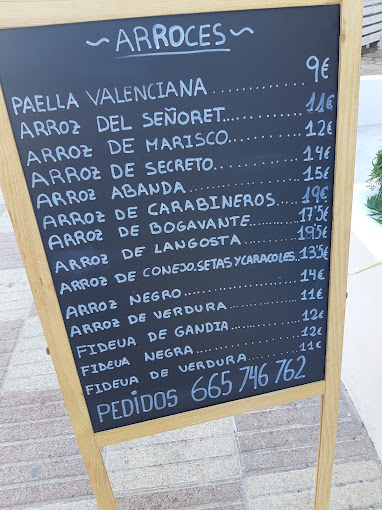 ~ARROCES~
PAELLA VALENCIANA 9€
ARROZ DEL SEÑORET... 11€
ARROZ DE MARISCO... 12€
ARROZ DE SECRETO... 14€
ARROZ ABANDA... 15€
ARROZ DE CARABINEROS... 19€
ARROZ DE BOGAVANTE... 17'5€
ARROZ DE LANGOSTA... 19'5€
ARROZ DE CONEJO, SETAS Y CARACOLES. 13'5€
ARROZ NEGRO... 14€
ARROZ DE VERDURA... 11€
FIDEUA DE GANDIA... 12€
FIDEUA NEGRA... 12€
FIDEUA DE VERDURA... 11€
PEDIDOS 665 746 762